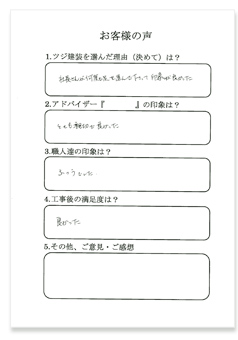 お客様の声
1.ツジ建装を選んだ理由（決めて）は？
社長さんが何度も足を運んで下さって印象が良かった
2.アドバイザー『　　　　』の印象は？
とても親切で良かった
3.職人達の印象は？
ふつうでした
4.工事後の満足度は？
良かった
5.その他、ご意見・ご感想